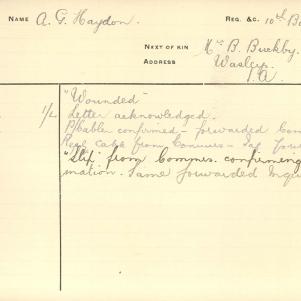 NAME A. G. Haydon REG. &C. 10th B
NEXT OF KIN Mrs B. Buckby
ADDRESS Wasleys
S.A.
"Wounded"
1/2 Letter acknowledged.
P/Cable confirmed - forwarded
Cable from
"Slip" from Commrs. confirming
mation. Same forwarded Inqui